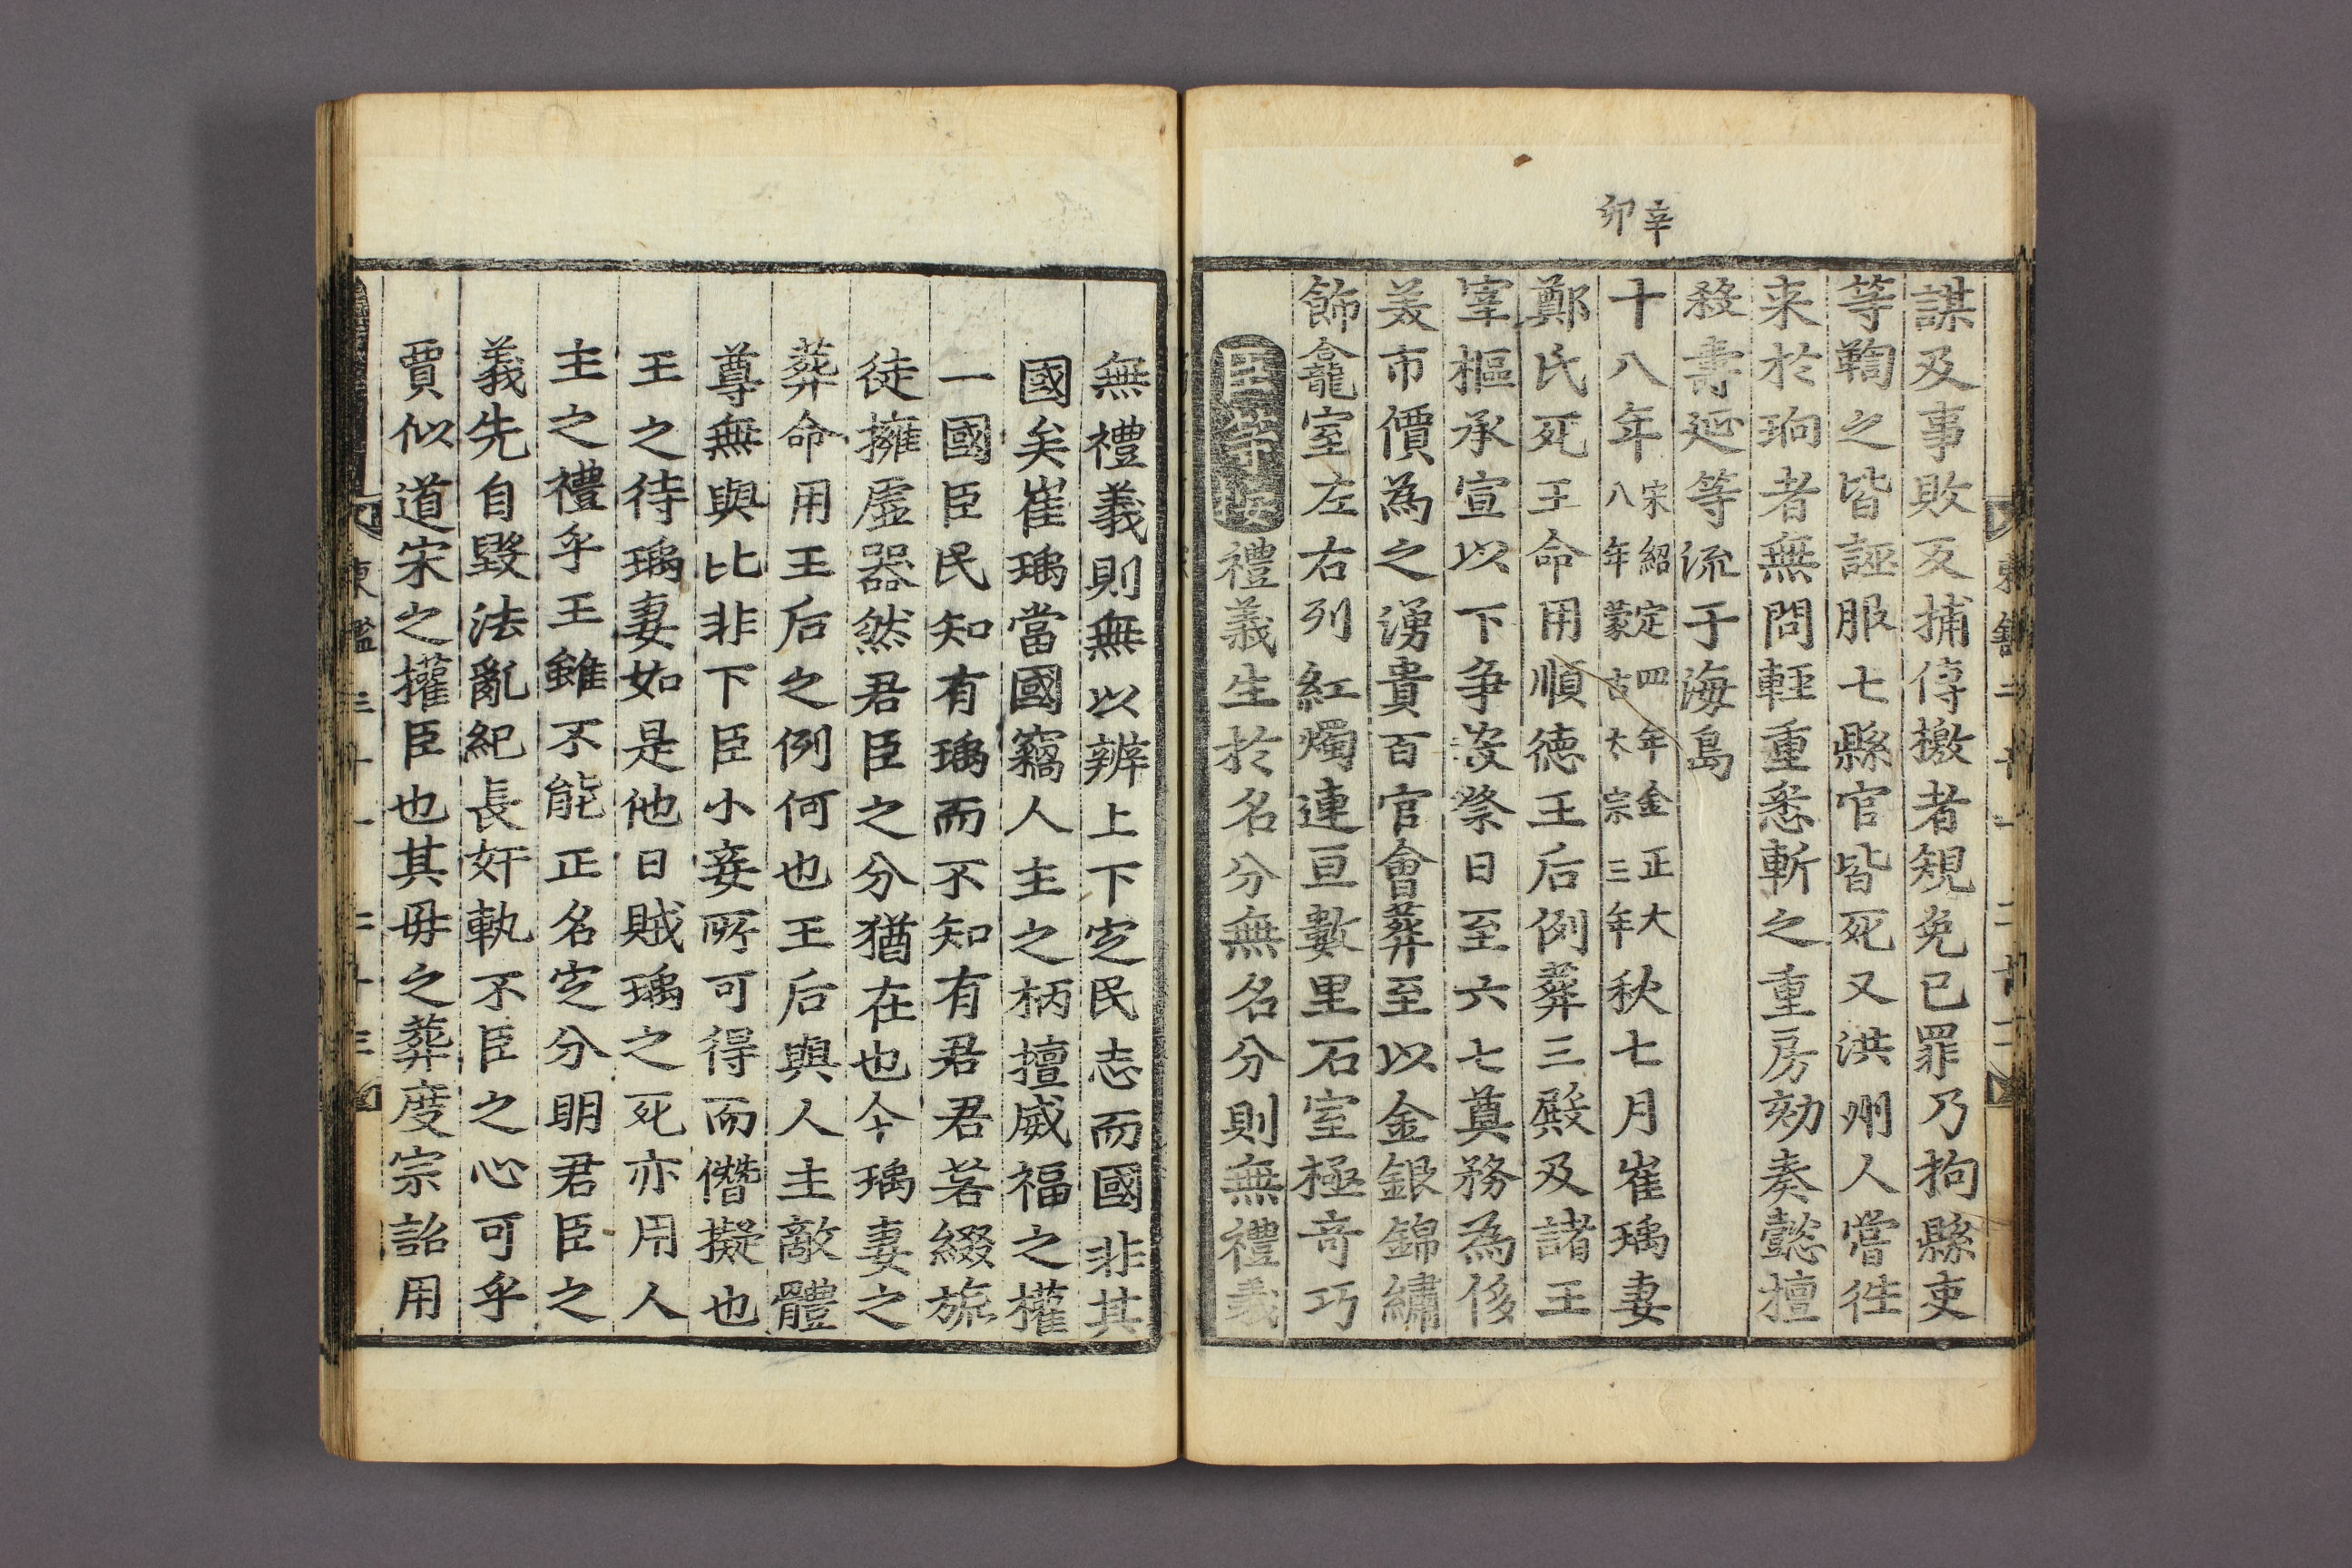 辛卯
謀及事敗反捕傳檄者䂓免已罪乃拘縣吏
等鞫之皆誣服七縣官皆死又洪州人嘗徃
来於珦者無問輕重悉斬之重房劾奏懿擅
殺壽延等流于海島
十八年宋紹定四年金正大八年蒙古太宗三年秋七月崔瑀妻
鄭氏死王命用順徳王后例葬三殿及諸王
宰樞承宣以下争設祭日至六七奠務為侈
美市價為之湧貴百官會葬至以金銀錦繡
飾龕室左右列紅燭連亘數里石室極竒巧
臣等按禮義生於名分無名分則無禮義
無禮義則無以辨上下㝎民志而國非其
國矣崔瑀當國竊人主之柄擅威福之權
一國臣民知有瑀而不知有君君若綴旒
徒擁虛器然君臣之分猶在也今瑀妻之
葬命用王后之例何也王后與人主敵體
尊無與比非下臣小妾所可得而僭擬也
王之待瑀妻如是他日賊瑀之死亦用人
主之禮乎王雖不能正名㝎分明君臣之
義先自毀法亂紀長奸軌不臣之心可乎
賈似道宋之權臣也其毋之葬度宗詔用
東鑑三十一 二十三